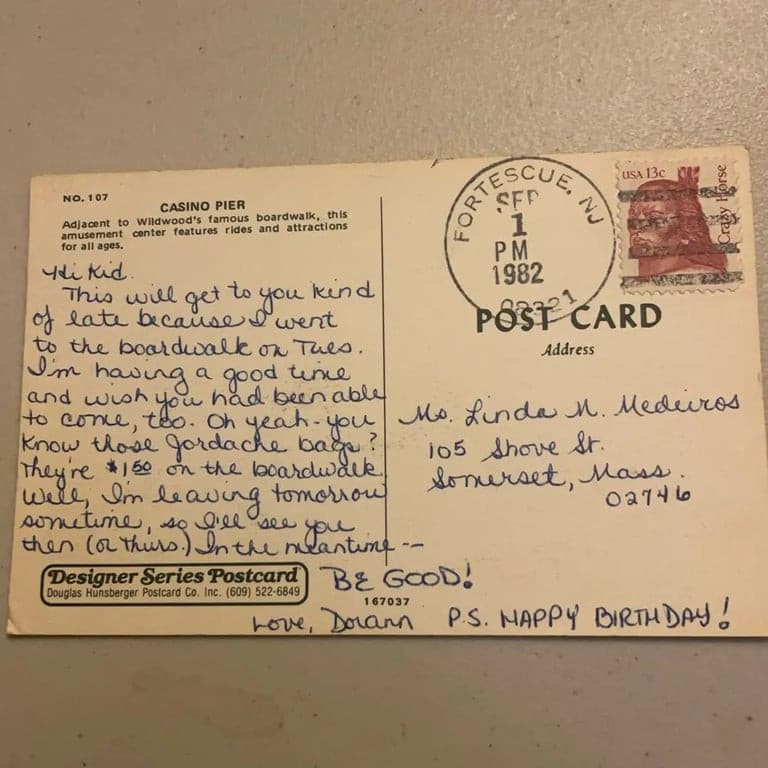 NO. 107
CASINO PIER
Adjacent to Wildwood's famous boardwalk, this
amusement center features rides and attractions
for all ages.
Hi Kid.
This will get to you kind
of late because I went
to the boardwalk on Tues.
I'm having a good time
and wish you had been able
to come, too. Oh yeah - you
know those Jordache bags?
They're $1.50 on the boardwalk
Well, I'm leaving tomorrow
sometime, so I'll see you
then (or Thurs.) In the meantime --
BE GOOD!
Love, Doann P.S. HAPPY BIRTHDAY!
Designer Series Postcard
Douglas Hunsberger Postcard Co. Inc. (609) 522-6849
167037
FORTESCUE, NJ
SEP
1
PM
1982
USA 13c
Crazy Horse
POST CARD
Address
Ms. Linda M. Medeiros
105 Shove St.
Somerset, Mass.
02746